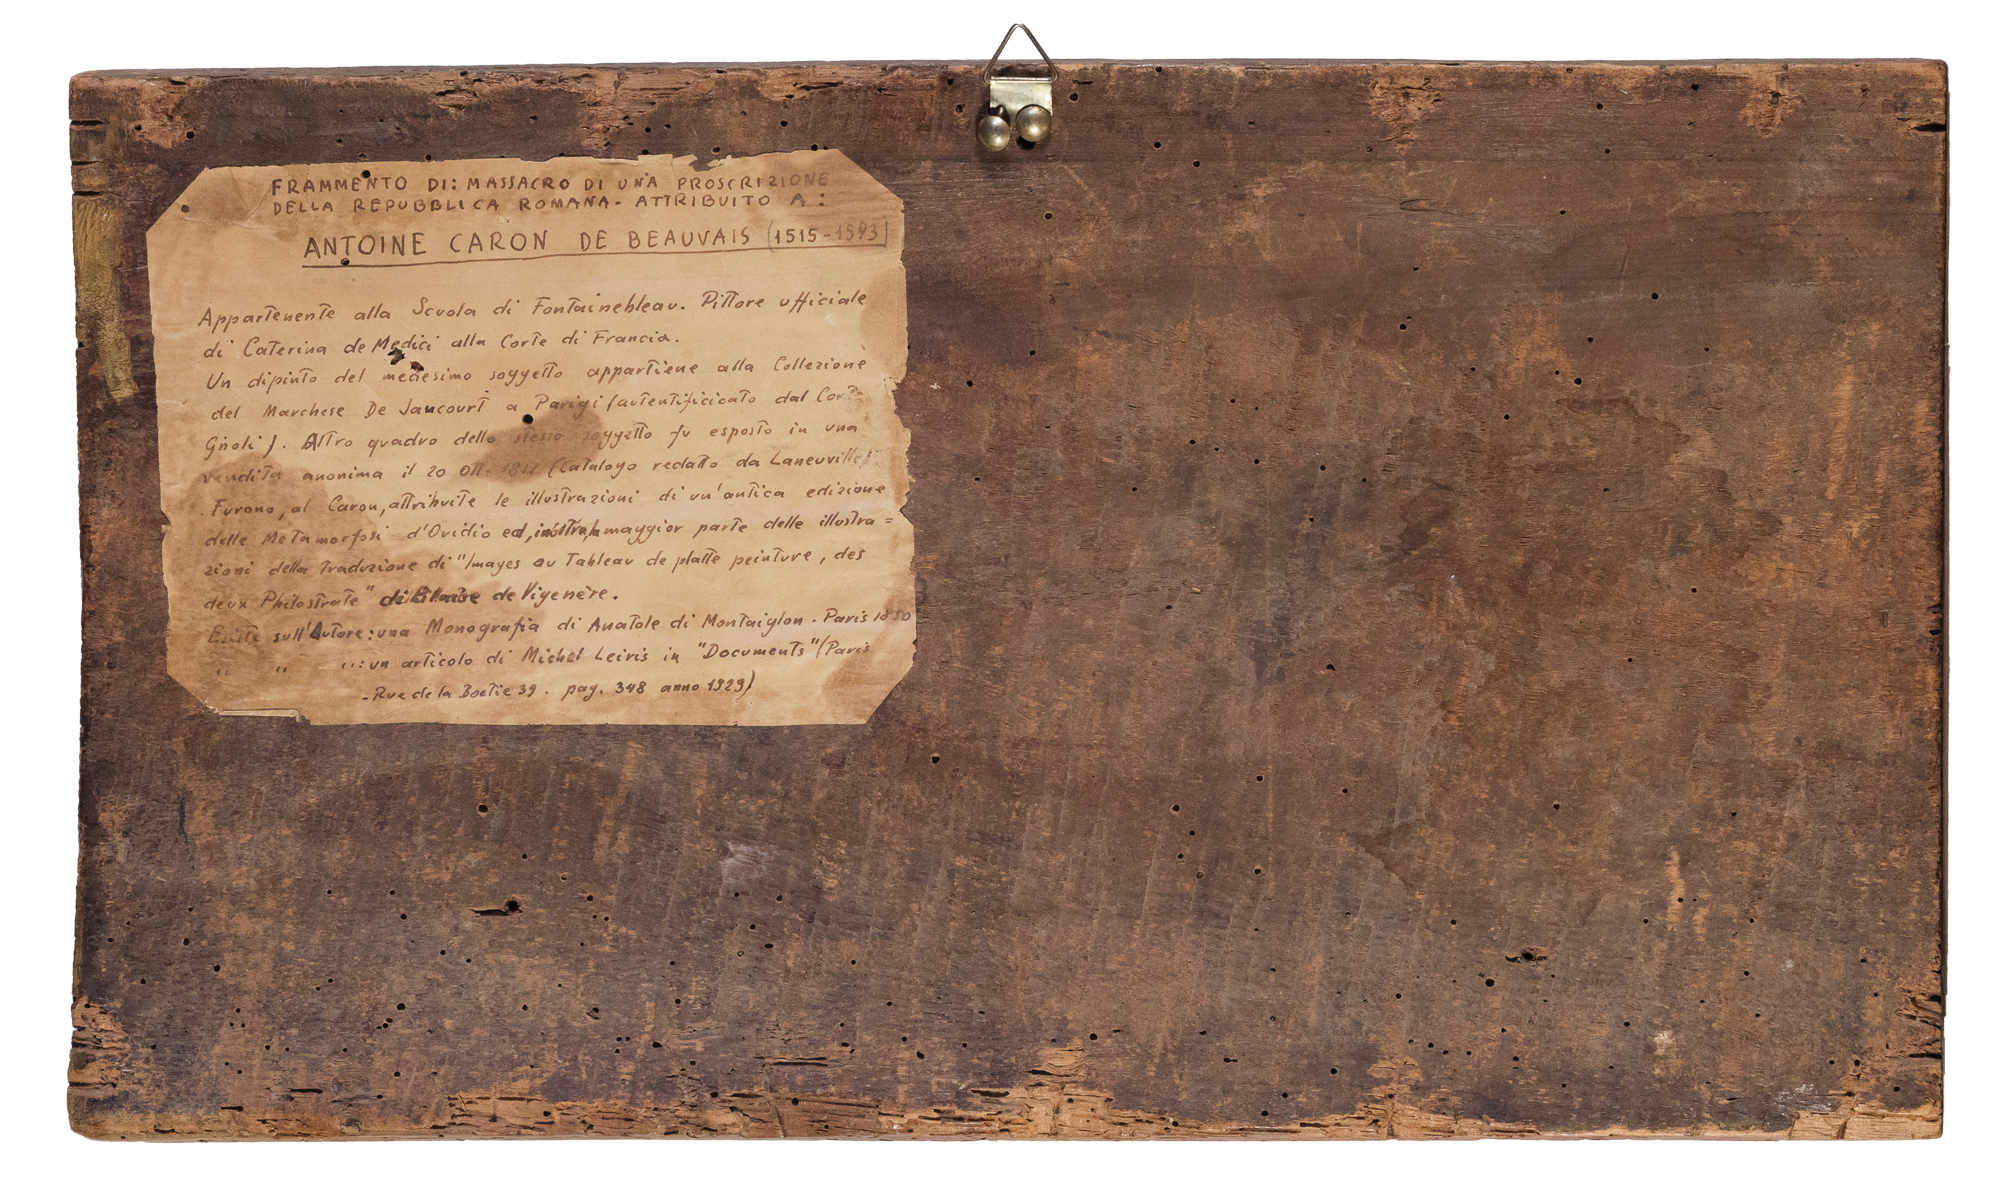 FRAMMENTO DI: MASSACRO DI UNA PROSCRIZIONE
DELLA REPUBBLICA ROMANA - ATTRIBUITO A :
ANTOINE CARON DE BEAUVAIS (1515-1593)
Appartenente alla Scuola di Fontainebleau. Pittore ufficiale
di Caterina de Medici alla Corte di Francia.
Un dipinto del medesimo soggetto appartiene alla Collezione
del Marchese De Jaucourt a Parigi (autentificicato dal
Gnoli). Altro quadro dello stesso soggetto fu esposto in una
vendita anonima il 20 Ott. (Catalogo redatto da Laneuville)
Furono, al Caron, attribuite le illustrazioni di un'antica edizione
delle Metamorfosi d'Ovidio ed, inoltre, maggior parte delle illustra=
zioni della Traduzione di "Images ou Tableau de platte peinture, des
deux Philostrate" di Blaise de Vigenère.
Esiste sull'Autore: una Monografia di Anatole di Montaiglon. Paris 1850
" " ": un articolo di Michel Leiris in "Documents" (Paris
- Rue de la Boetie 39. pag. 348 anno 1929)